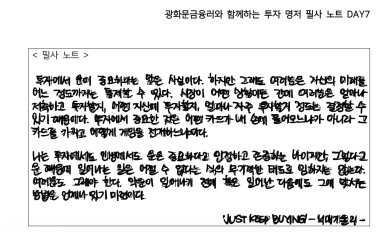 광화문금융러와 함께하는 투자 명저 필사 노트 DAY7
< 필사 노트 >
투자에서 운이 중요하다는 말은 사실이다. 하지만 그래도 여러분은 자신의 미래를
어느 정도까지는 통제할 수 있다. 시장이 어떤 상황이든 간에 여러분은 얼마나
저축하고 투자할지, 어떤 자산에 투자할지, 얼마나 자주 투자할지 정도는 결정할 수
있기 때문이다. 투자에서 중요한 것은 어떤 카드가 내 손에 들어오느냐가 아니라 그
카드를 가지고 어떻게 게임을 전개하느냐이다.
나는 투자에서도 인생에서도 운은 중요하다고 인정하고 존중하는 바이지만, 그렇다고
운 때문에 일어나는 일은 어쩔 수 없다는 식의 무기력한 태도로 임하지는 않는다.
여러분도 그래야 한다. 악운이 일어나기 전에 혹은 일어난 다음에도 그에 맞서는
방법은 언제나 있기 마련이다.
'JUST KEEP BUYING' - 닉매기울리 -